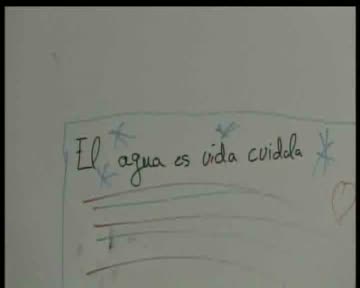 El agua es vida cuidala